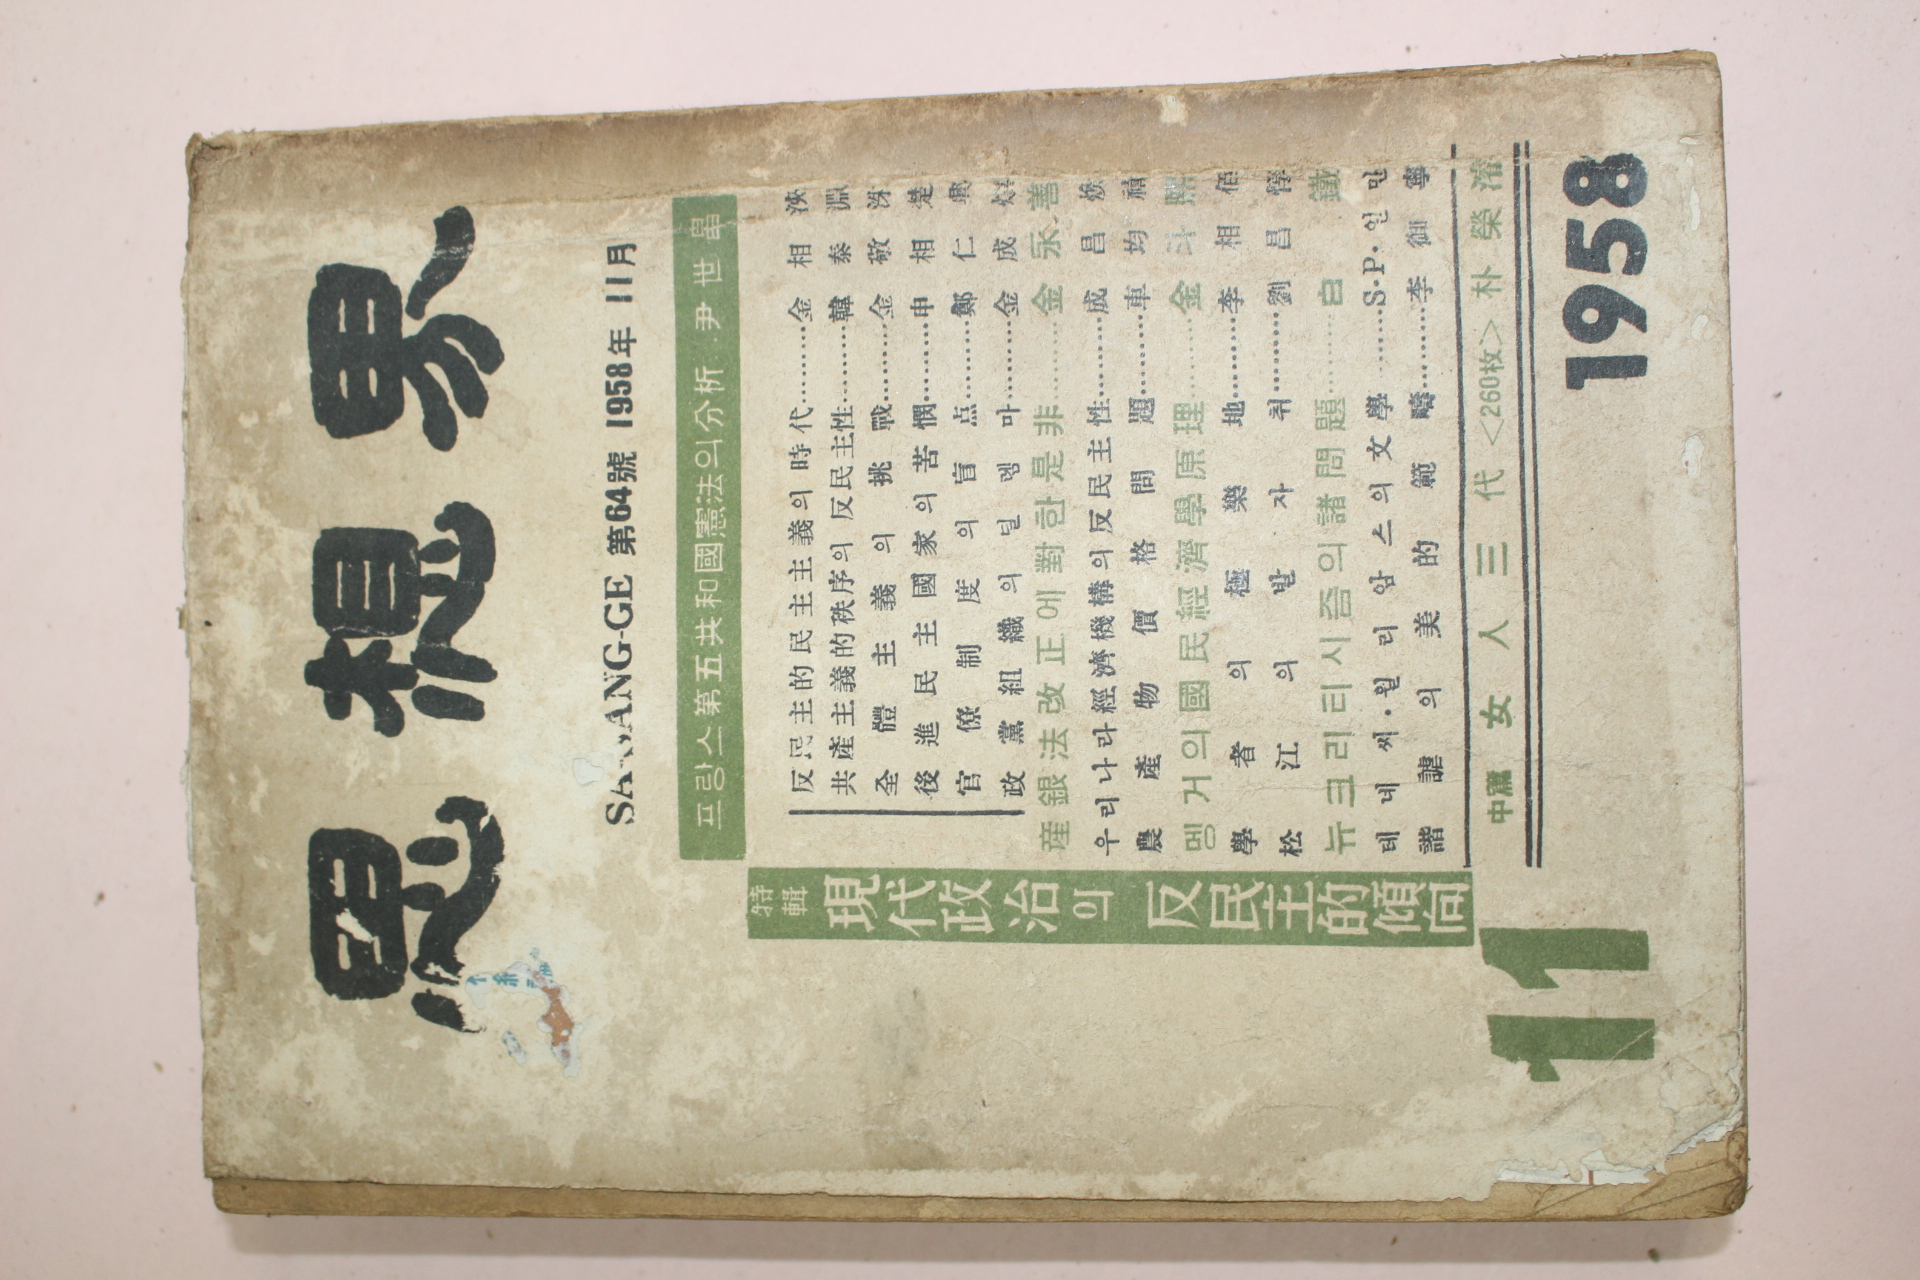 思想界
SASANG-GE 第64號 1958年 11月
프랑스第五共和國憲法의分析 尹世昌
特輯
現代政治의 反民主的傾向
反民主的民主主義의時代………金相浹
共產主義的秩序의反民主性………韓泰淵
全體主義의挑戰………金敬洙
後進民主國家의苦憫………申相楚
官僚制度의盲点………鄭仁興
政黨組織의딜렘마………金成熺
産銀法改正에對한是非………金永善
우리나라經濟機構의反民主性………成昌煥
農産物價格問題………車均禧
멩거의國民經濟學原理………金斗熙
學者의極樂地………李相佰
松江의발자취………劉昌惇
뉴크리티시즘의諸問題………白鐵
테네씨·윌리암스의文學………S·P·일만
諧謔의美的範疇………李御寧
中篇 女人三代 <260枚> 朴榮濬
11
1958